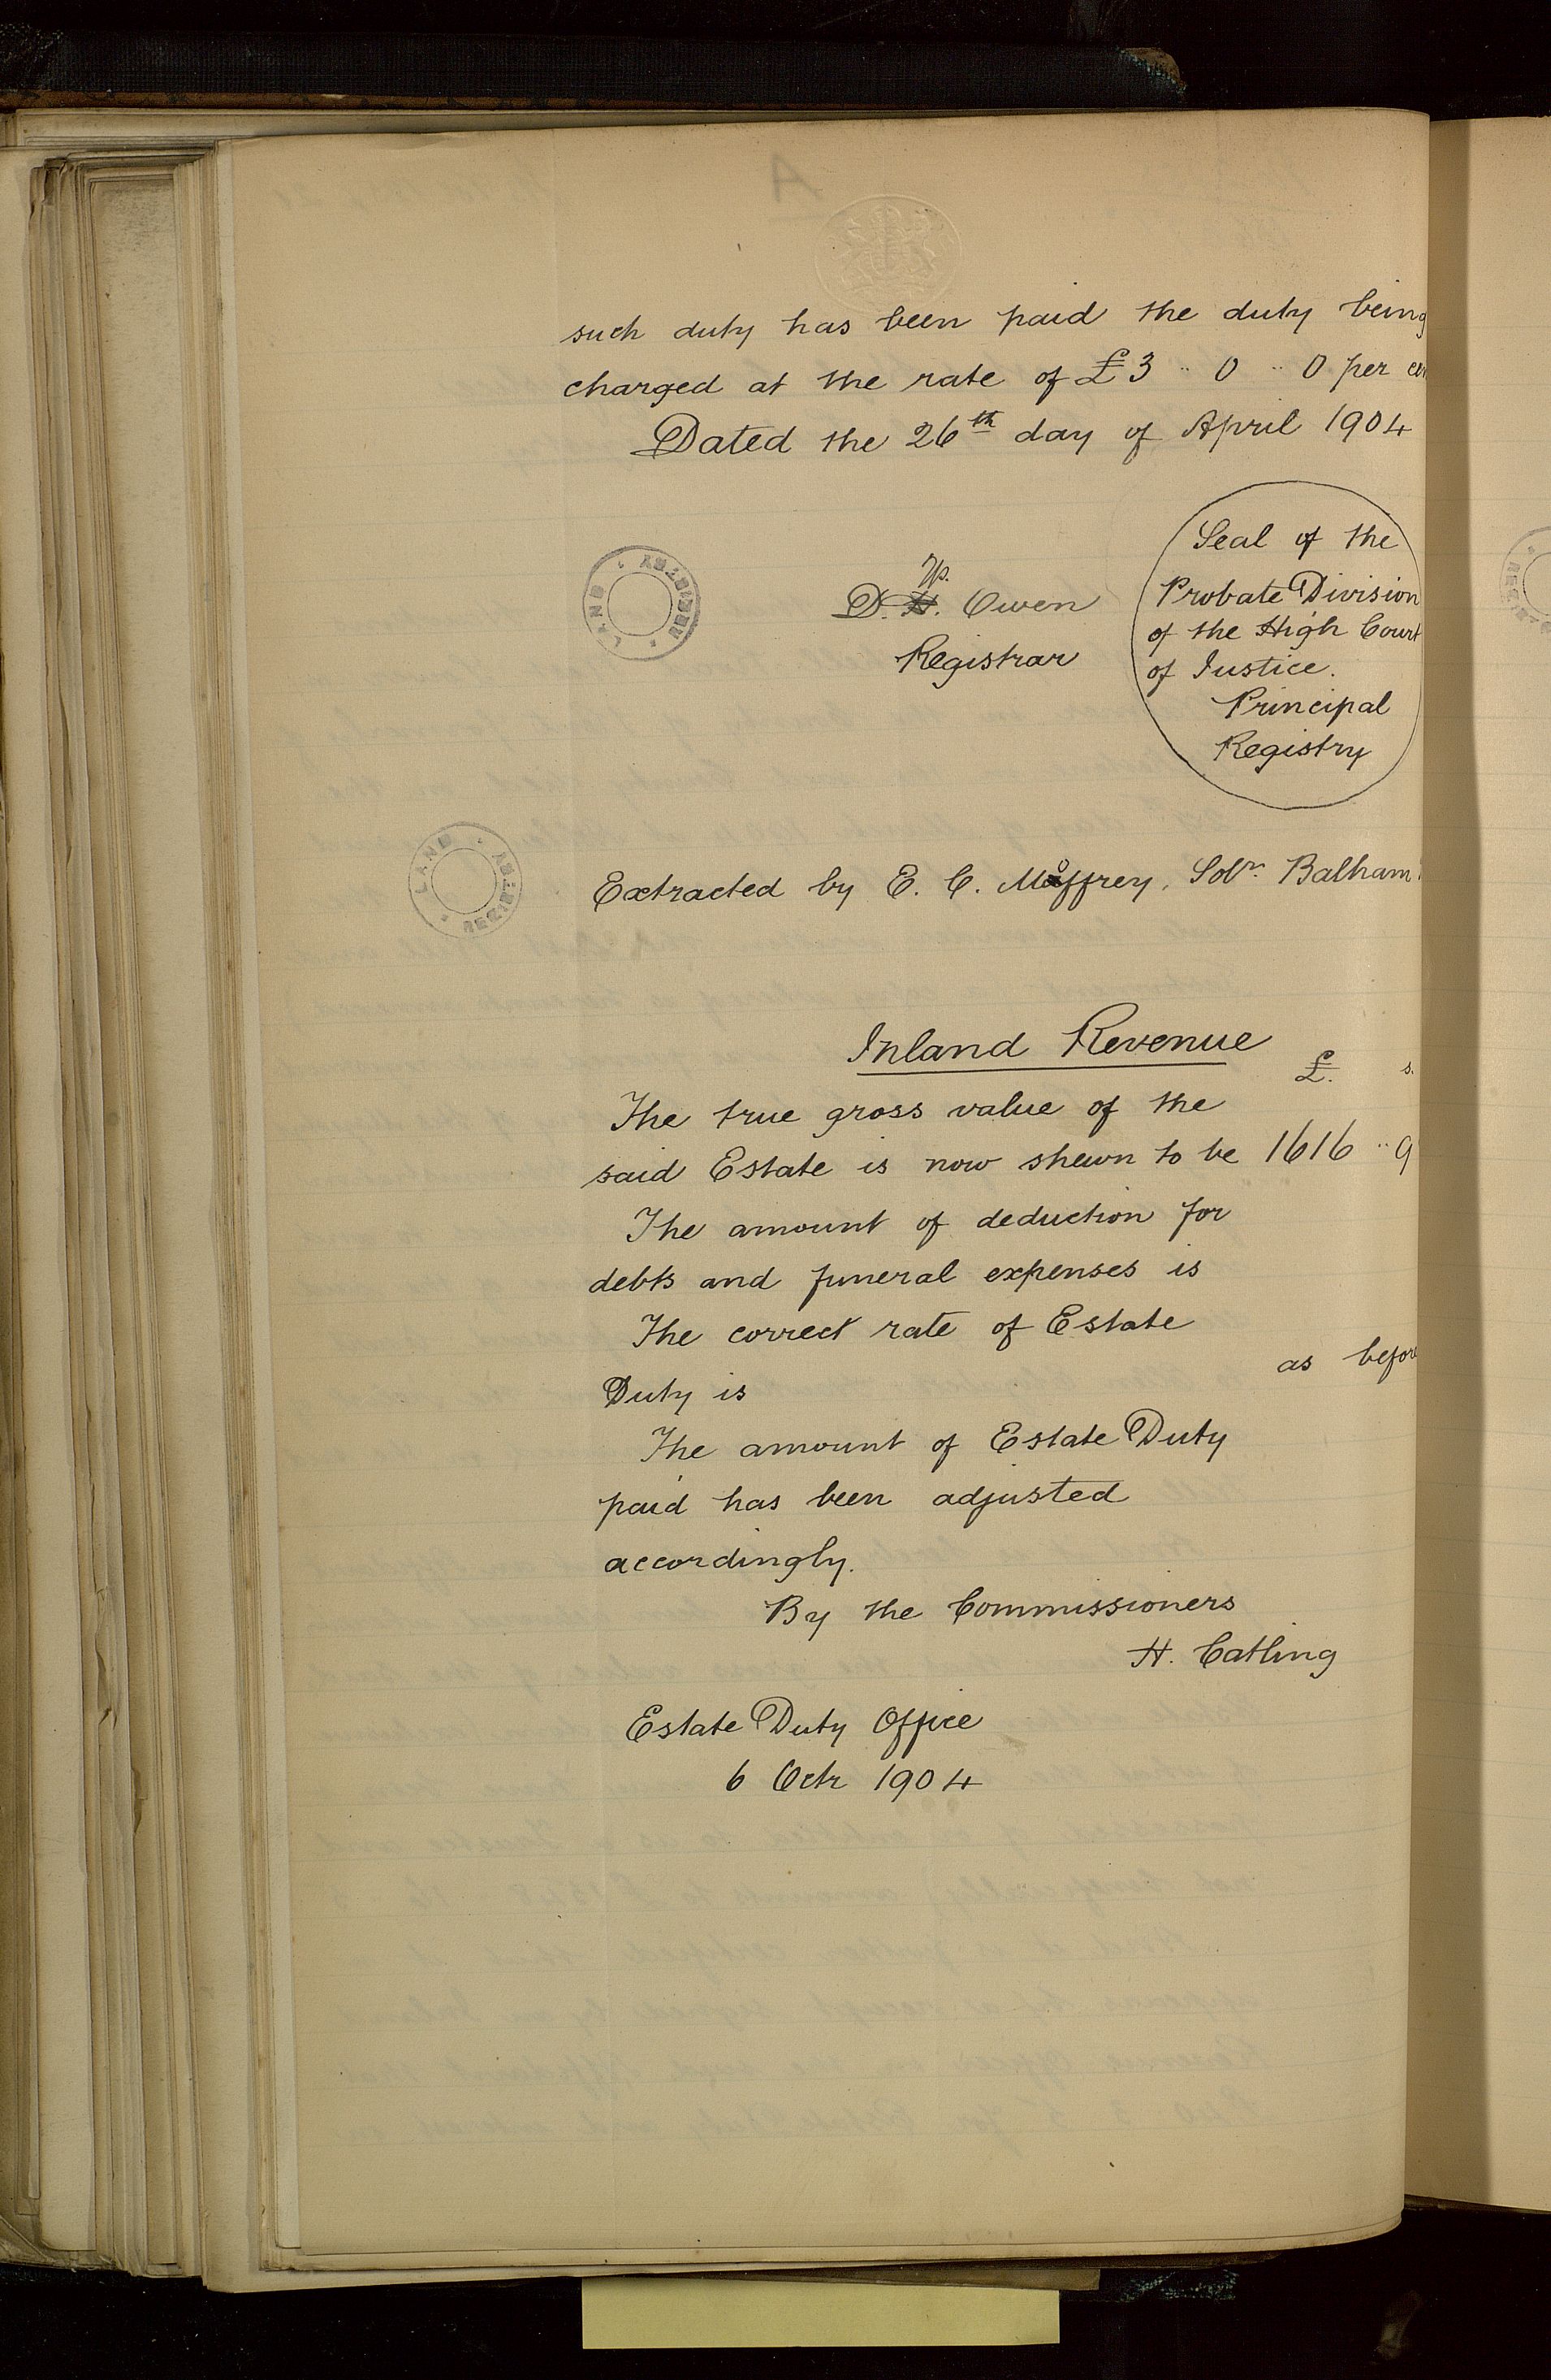 such duty has been paid the duty being
charged at the rate of £3 .. 0 .. 0 per cen
Dated the 26th day of April 1904
LAND REGISTRY
D. H. Owen
Registrar
Seal of the
Probate Division
of the High Court
of Justice.
Principal
Registry
LAND REGISTRY
Extracted by E. C. Moffrey, Solr. Balham
Inland Revenue
£. s.
The true gross value of the
said Estate is now shewn to be 1616 .. 9
The amount of deduction for
debts and funeral expenses is
The correct rate of Estate
Duty is
as before
The amount of Estate Duty
paid has been adjusted
accordingly.
By the Commissioners
H. Catling
Estate Duty Office
6 Octr 1904